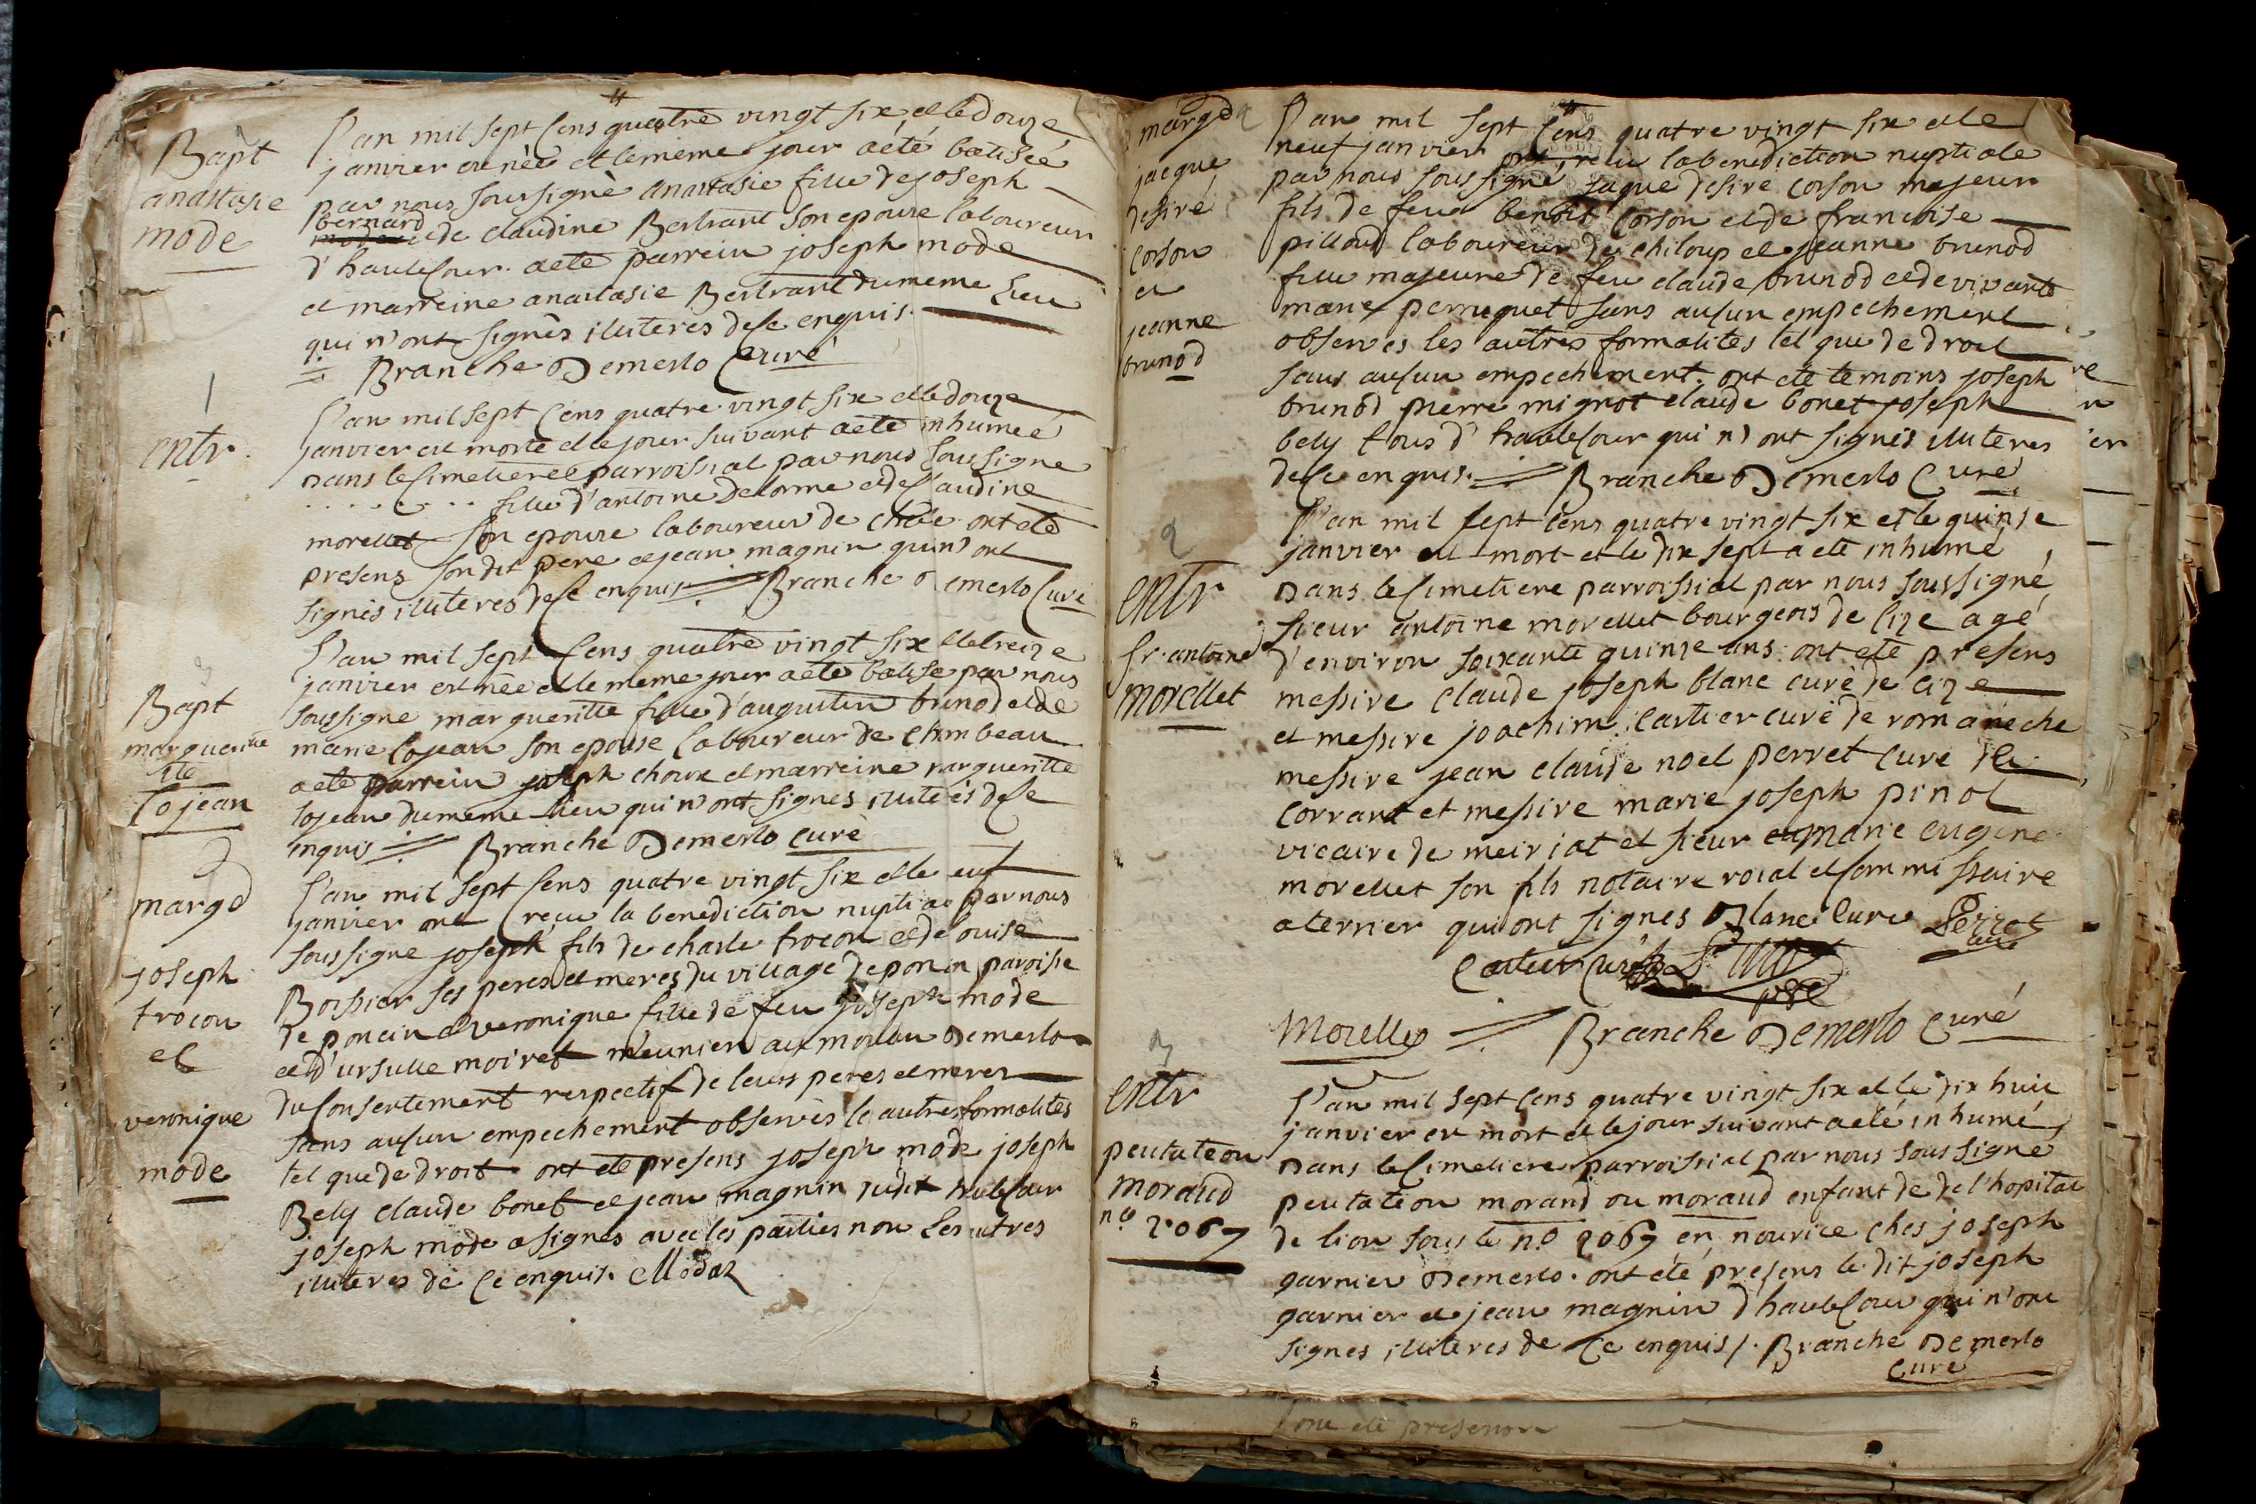 Bapt
anastasie
mode
L'an mil sept cens quatre vingt six et le douze
janvier est née et le meme jour a été batisée
par nous soussigné anastasie fille de joseph
bernard
et de claudine Bertrant son epouse laboureur
d'hautecour. a eté parrein joseph mode
et marreine anastasie Bertrant du meme lieu
qui n'ont signés illiteres de ce enquis.
Branche Demerlo Curé
1
entr.
L'an mil sept cens quatre vingt six et le douze
janvier est morte et le jour suivant a eté inhumée
dans le cimetiere parroissial par nous soussigné
. . . . . . . . fille d'antoine delorme et de claudine
morellet son epouse laboureur de ont eté
presens son dit pere et jean magnin qui n'ont
signés illiteres de ce enquis Branche Demerlo Curé
Bapt
marguerite
lojean
L'an mil sept cens quatre vingt six et le treize
janvier est née et le meme jour a eté batisé par nous
soussigné margueritte fille d'augustin brunod et de
marie lojean son epouse laboureur de chambeau
a eté parrein joseph choux et marreine margueritte
lojean du meme lieu qui n'ont signés illiterés de ce
inquis Branche Demerlo curé
marge
joseph
trocon
et
veronique
mode
L'an mil sept cens quatre vingt six et le neuf
janvier ont reçu la benediction nuptiale par nous
soussigné joseph fils de charle trocon et de louise
Boissier ses peres et meres du village de poncin paroisse
de poncin et veronique fille de feu joseph mode
et d'ursulle moiret meunier au moulin Demerlo
du consentement respectif de leurs peres et meres
sans aucun empechement observés les autres formalités
tel que de droit ont eté presens joseph mode joseph
Bely claude bonet et jean magnin du dit hautecour
joseph mode a signés avec les parties non les autres
illiteres de ce enquis. Modaz
marge 2
jacque
desiré
corson
et
jeanne
brunod
L'an mil sept cens quatre vingt six et le
neuf janvier ont reçu la benediction nuptiale
par nous soussigné jaque desire corson majeur
fils de feu benoit corson et de francoise
pilloud laboureur de chiloup et jeanne brunod
fille majeure de feu claude brunod et de vivante
marie perruquet sans aucun empechement
observés les autres formalités tel que de droit
sans aucun empechement. ont eté temoins joseph
brunod pierre mignot claude bonet joseph
bely tous d'hautecour qui n'ont signés illiteres
de ce enquis. Branche Demerlo Curé
2
entr
sr. antoine
morellet
L'an mil sept cens quatre vingt six et le quinze
janvier est mort et le dix sept a eté inhumé
dans le cimetiere parroissial par nous soussigné
sieur antoine morellet bourgeois de cize agé
d'environ soixante quinze ans. ont eté presens
messire claude joseph blanc curé de cize
et messire joachim cartier curé de romaneche
messire jean claude noel perret curé de
corrant et messire marie joseph pinot
vicaire de meiriat et sieur marie eugene
morellet son fils notaire roial et commissaire
a terrier qui ont signés Blanc Curé Perret
curé
Cartier Curé
Morellet Branche Demerlo Curé
3
entr
peutateon
moraud
n.o 2067
L'an mil sept cens quatre vingt six et le dix huit
janvier est mort et le jour suivant a eté inhumé
dans le cimetiere parroissial par nous soussigné
peutateon morand ou moraud enfant de de l'hopital
de lion sous le n.o 2067 en nourice ches joseph
garnier Demerlo. ont été presens le dit joseph
garnier et jean magnin d'hautecour qui n'ont
signés illiteres de ce enquis /. Branche Demerlo
Curé